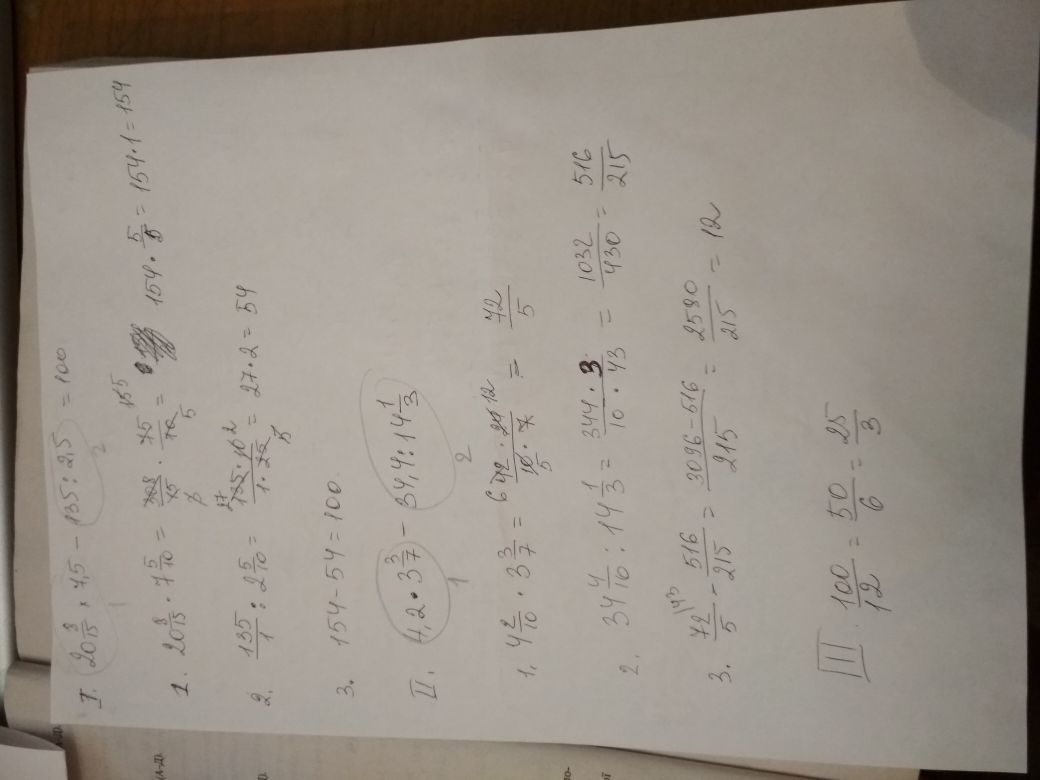 I. 20 8/15 × 7,5 - 135 : 2,5 = 100
1 2
1. 20 8/15 · 7 5/10 = 308/15 · 75/10 = 154 · 5/5 = 154 · 1 = 154
2. 135/1 : 2 5/10 = 135 · 10/1 · 25 = 27 · 2 = 54
3. 154 - 54 = 100.
II. 4,2 · 3 3/7 - 34,4 : 14 1/3
1 2
1. 4 2/10 · 3 3/7 = 42 · 24/10 · 7 = 72/5
2. 34 4/10 : 14 1/3 = 344 · 3/10 · 43 = 1032/430 = 516/215
3. 72/5 - 516/215 = 3096 - 516/215 = 2580/215 = 12
III. 100/12 = 50/6 = 25/3